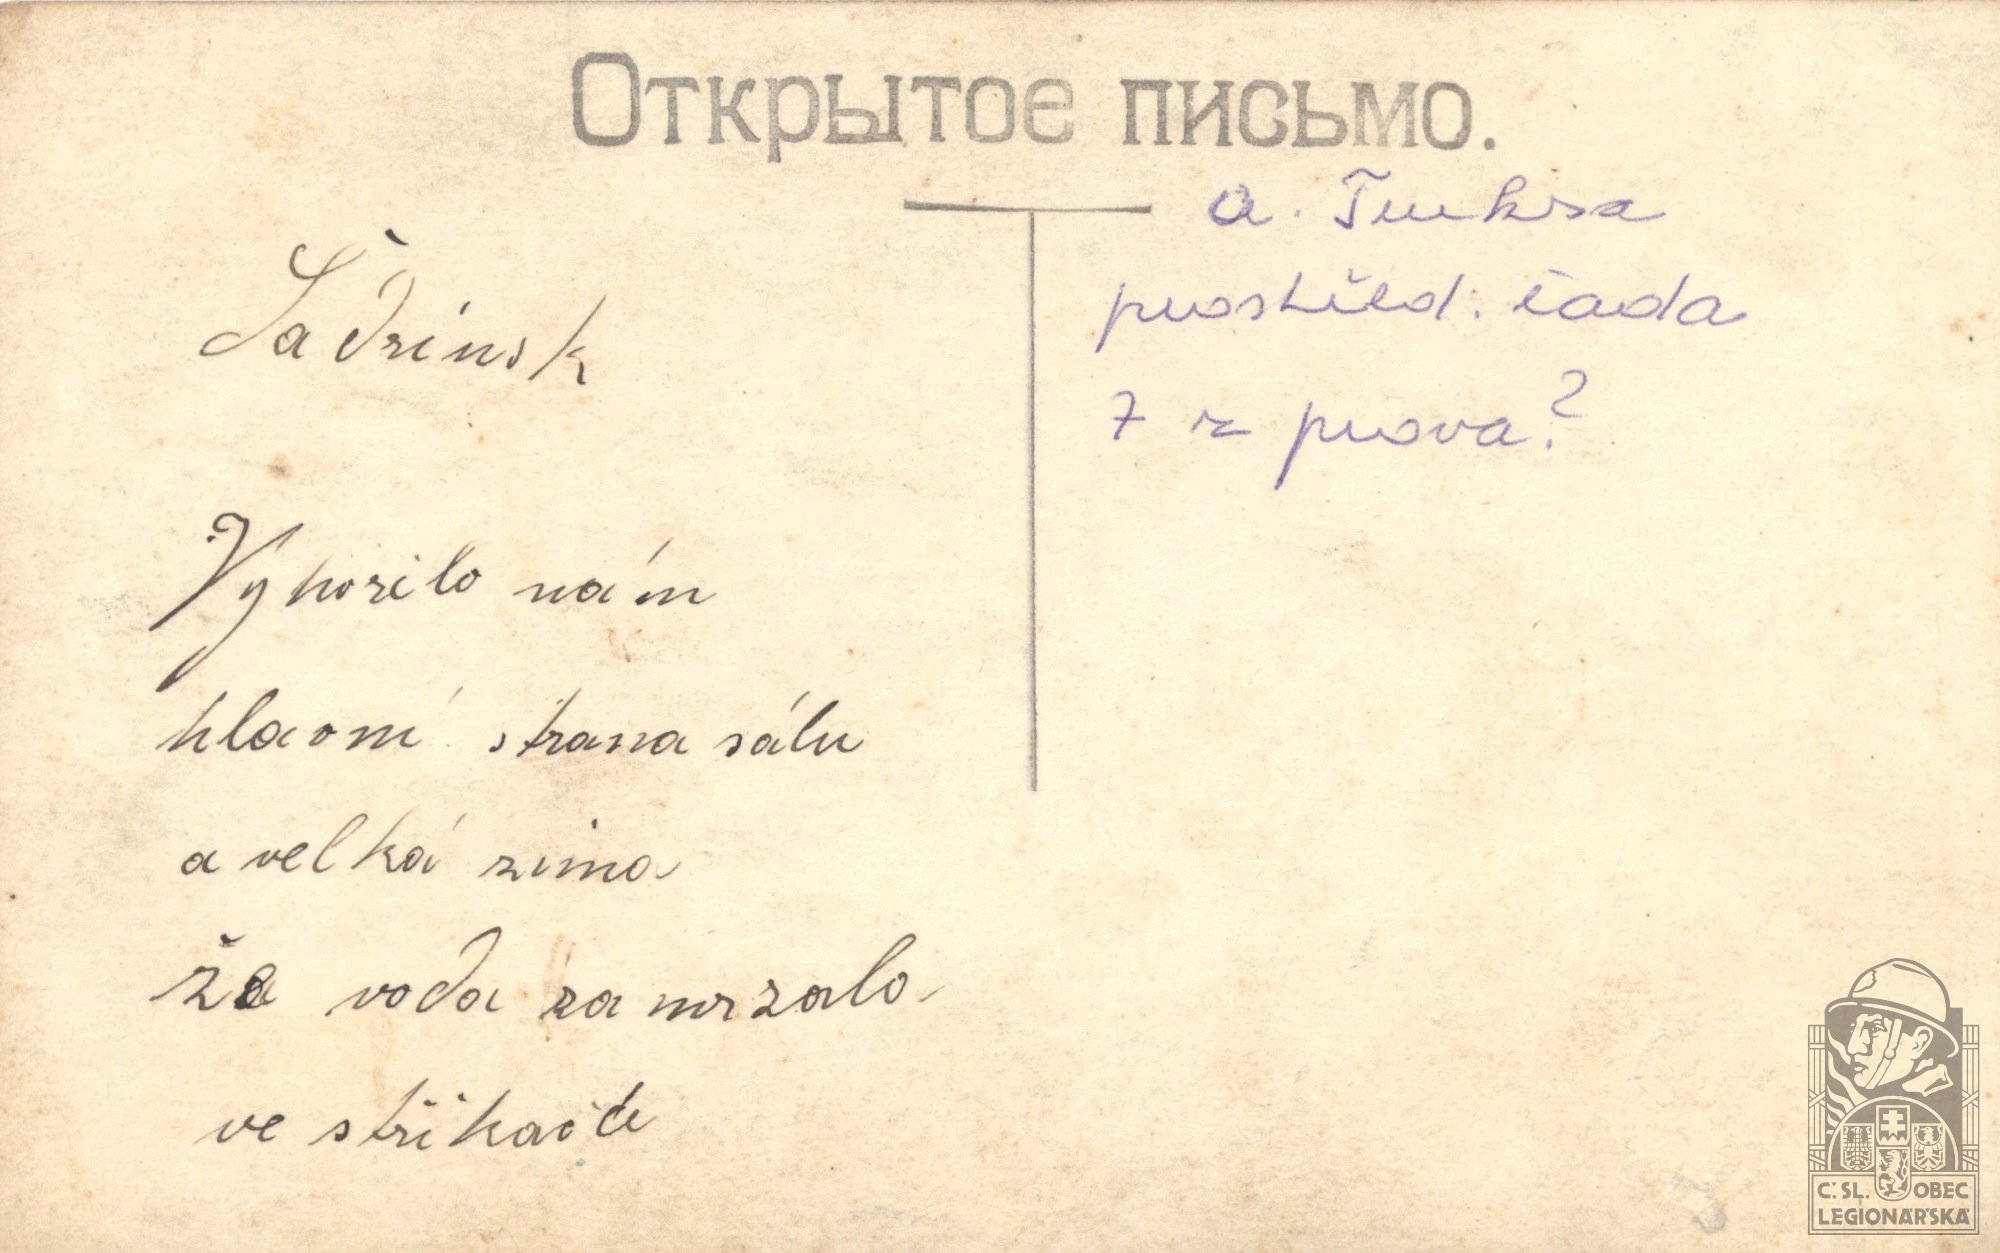 Открытое письмо.
Šadrinsk
Vyhořilo nám
hlavní strana sálu
a velká zima
že voda zamrzalo
ve stříkačce
a. Tuuksa
prostřed. řada
7 z prava?
Č.SL. OBEC
LEGIONÁŘSKÁ